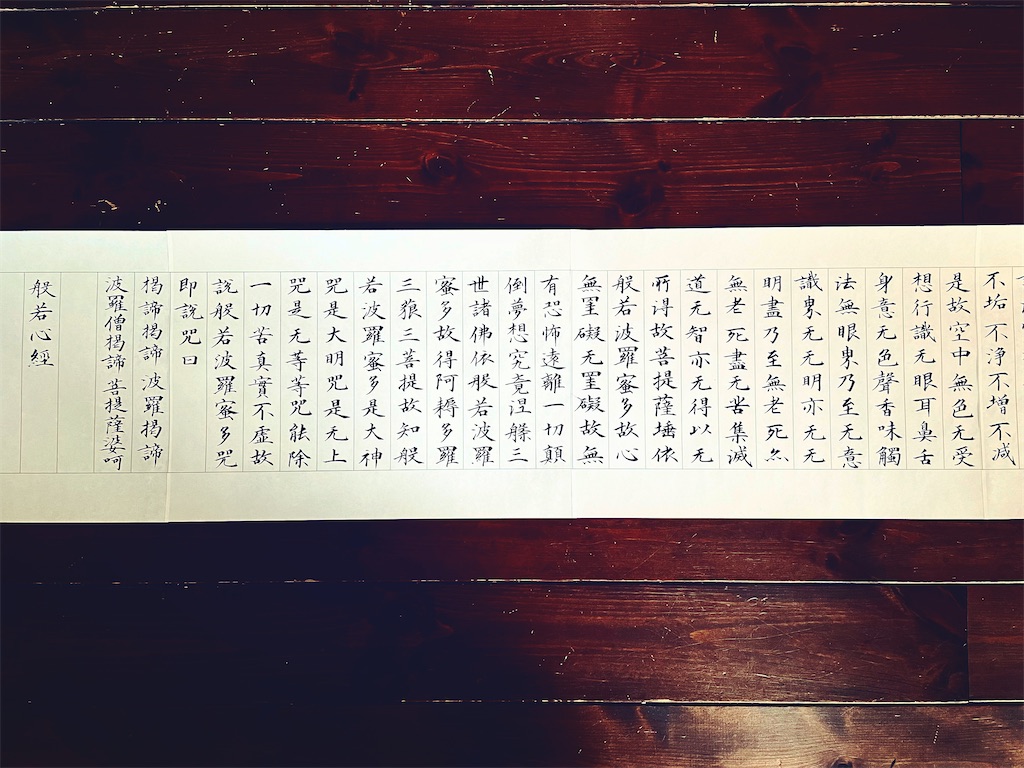 不垢不浄不增不減
是故空中無色无受
想行識无眼耳臭舌
身意无色聲香味觸
法無眼界乃至无意
識界无无明亦无无
明盡乃至無老死亦
無老死盡无苦集滅
道无智亦无得以无
所得故菩提薩埵依
般若波羅蜜多故心
無罣礙无罣礙故無
有恐怖遠離一切顛
倒夢想究竟涅槃三
世諸佛依般若波羅
蜜多故得阿耨多羅
三藐三菩提故知般
若波羅蜜多是大神
咒是大明咒是无上
咒是无等等咒能除
一切苦真實不虛故
說般若波羅蜜多咒
即說咒曰
揭諦揭諦波羅揭諦
波羅僧揭諦菩提薩婆呵
般若心經